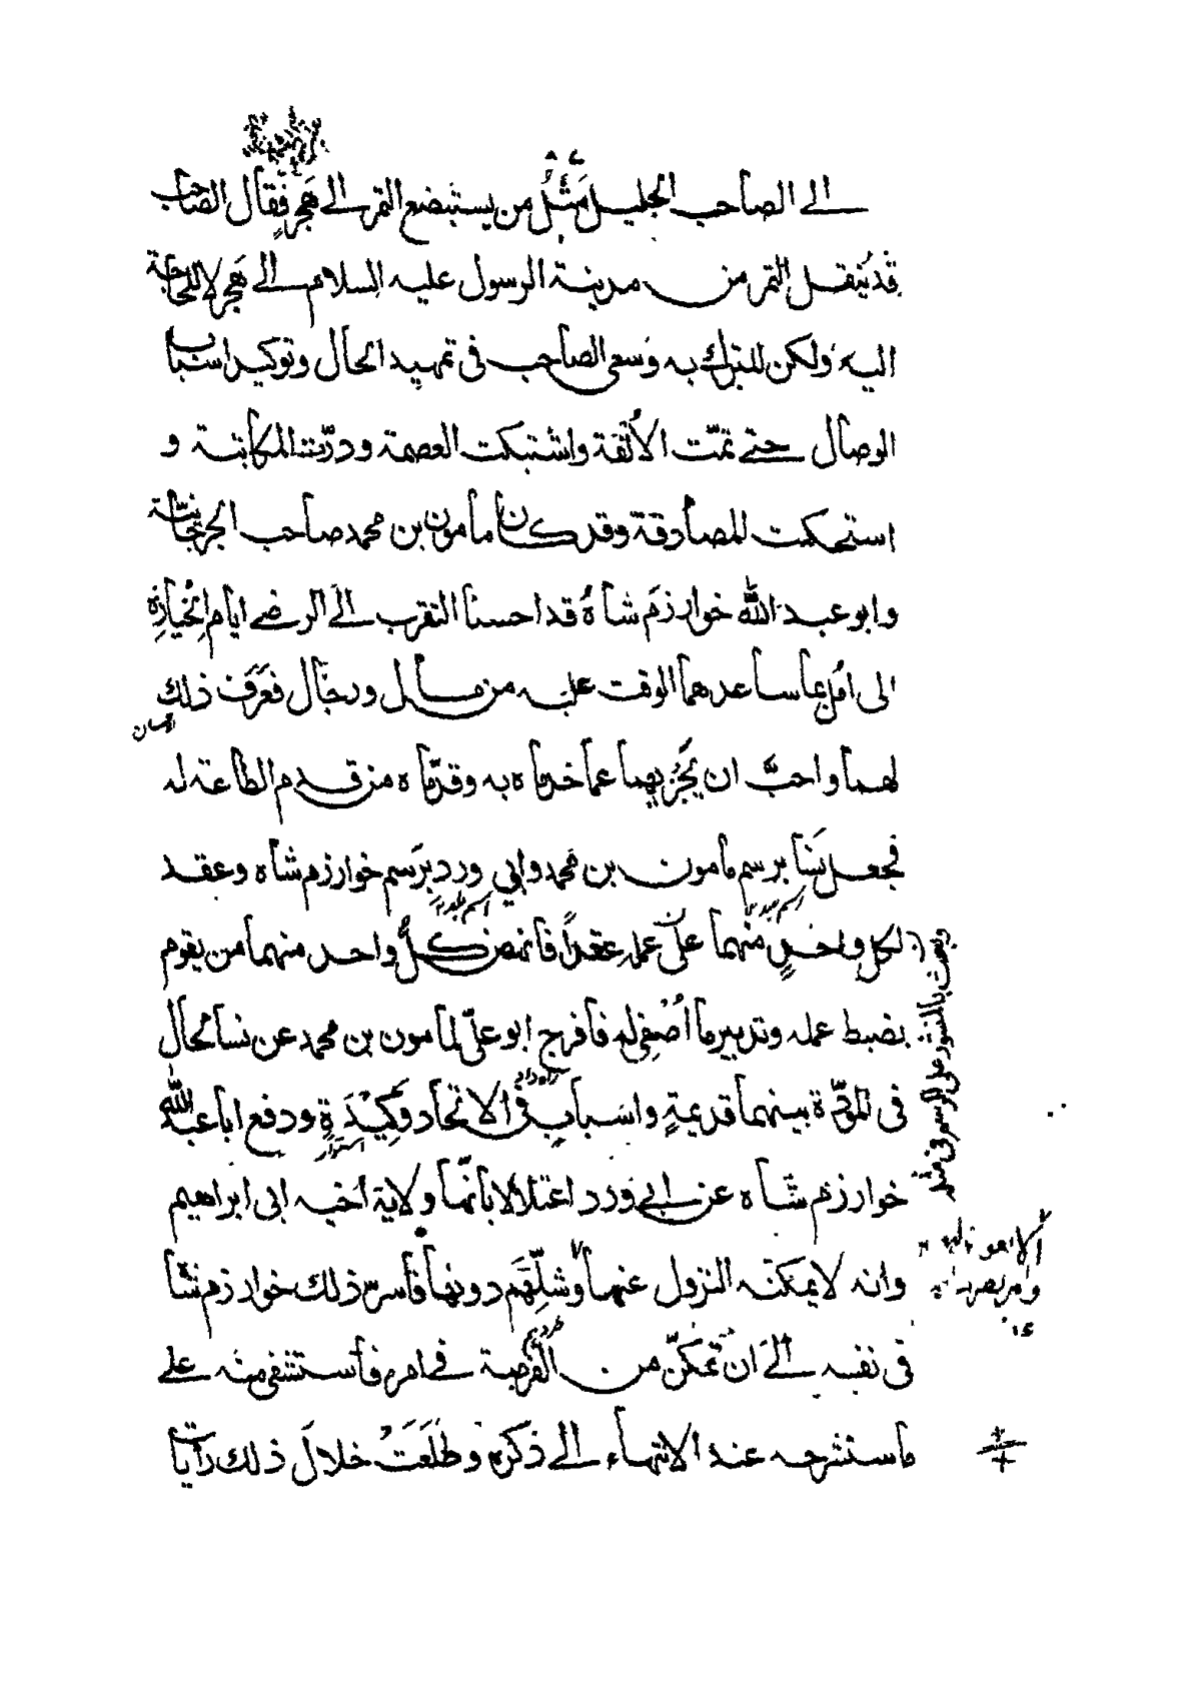 الى الصاحب الجليل مَثَلُ من يستبضع التمر الى هَجَرٍ فقال الصاحب
قد يُنقل التمر من مدينة الرسول عليه السلام الى هَجَر لا للحاجة
اليه ولكن للتبرك به وسعى الصاحب فى تمهيد الحال وتوكيد اسباب
الوصال حتى تمّت الأُلْفة واشتبكت العصمة ودرّت المكاتبة و
استحكمت المصادقة وقد كان مامون بن محمد صاحب الجرجانية
وابو عبد الله خوارزم شاه قد احسنا التقرب الى الرضى ايام انحيازه
الى امُل بما ساعدهما الوقت عليه من مال ورجال فعَرَف ذلك
لهما واحبَّ ان يَجْزيهما عما خدماه به وقدّماه من قدم الطاعة له
فجعل نَسَا برسم مامون بن محمد وابى ورد برَسم خوارزم شاه وعقد
اسم بلده اسم بلده
لكل واحدٍ منهما على عمله عقداً فانهض كلُّ واحد منهما من يقوم
بضبط عمله وتدبير ما أُضيف له فافرج ابو علىّ لمامون بن محمد عن نسا لحال
فى المودّة بينهما قديمةٍ واسبابٍ فى الاتحاد وكيدةٍ ودفع ابا عبد الله
خوارزم شاه عن ابى ورد اعتلالا بانّها ولاية أخيه ابى ابراهيم
وانه لا يمكنه النزول عنها دونها فاسرّ ذلك خوارزم شا
فى نفسه الى ان تمكّن من الفرصة فى امره فاستشفى منه على
ما سنشرحه عند الانتهاء الى ذكره وطلَعَتْ خلالَ ذلك رايات